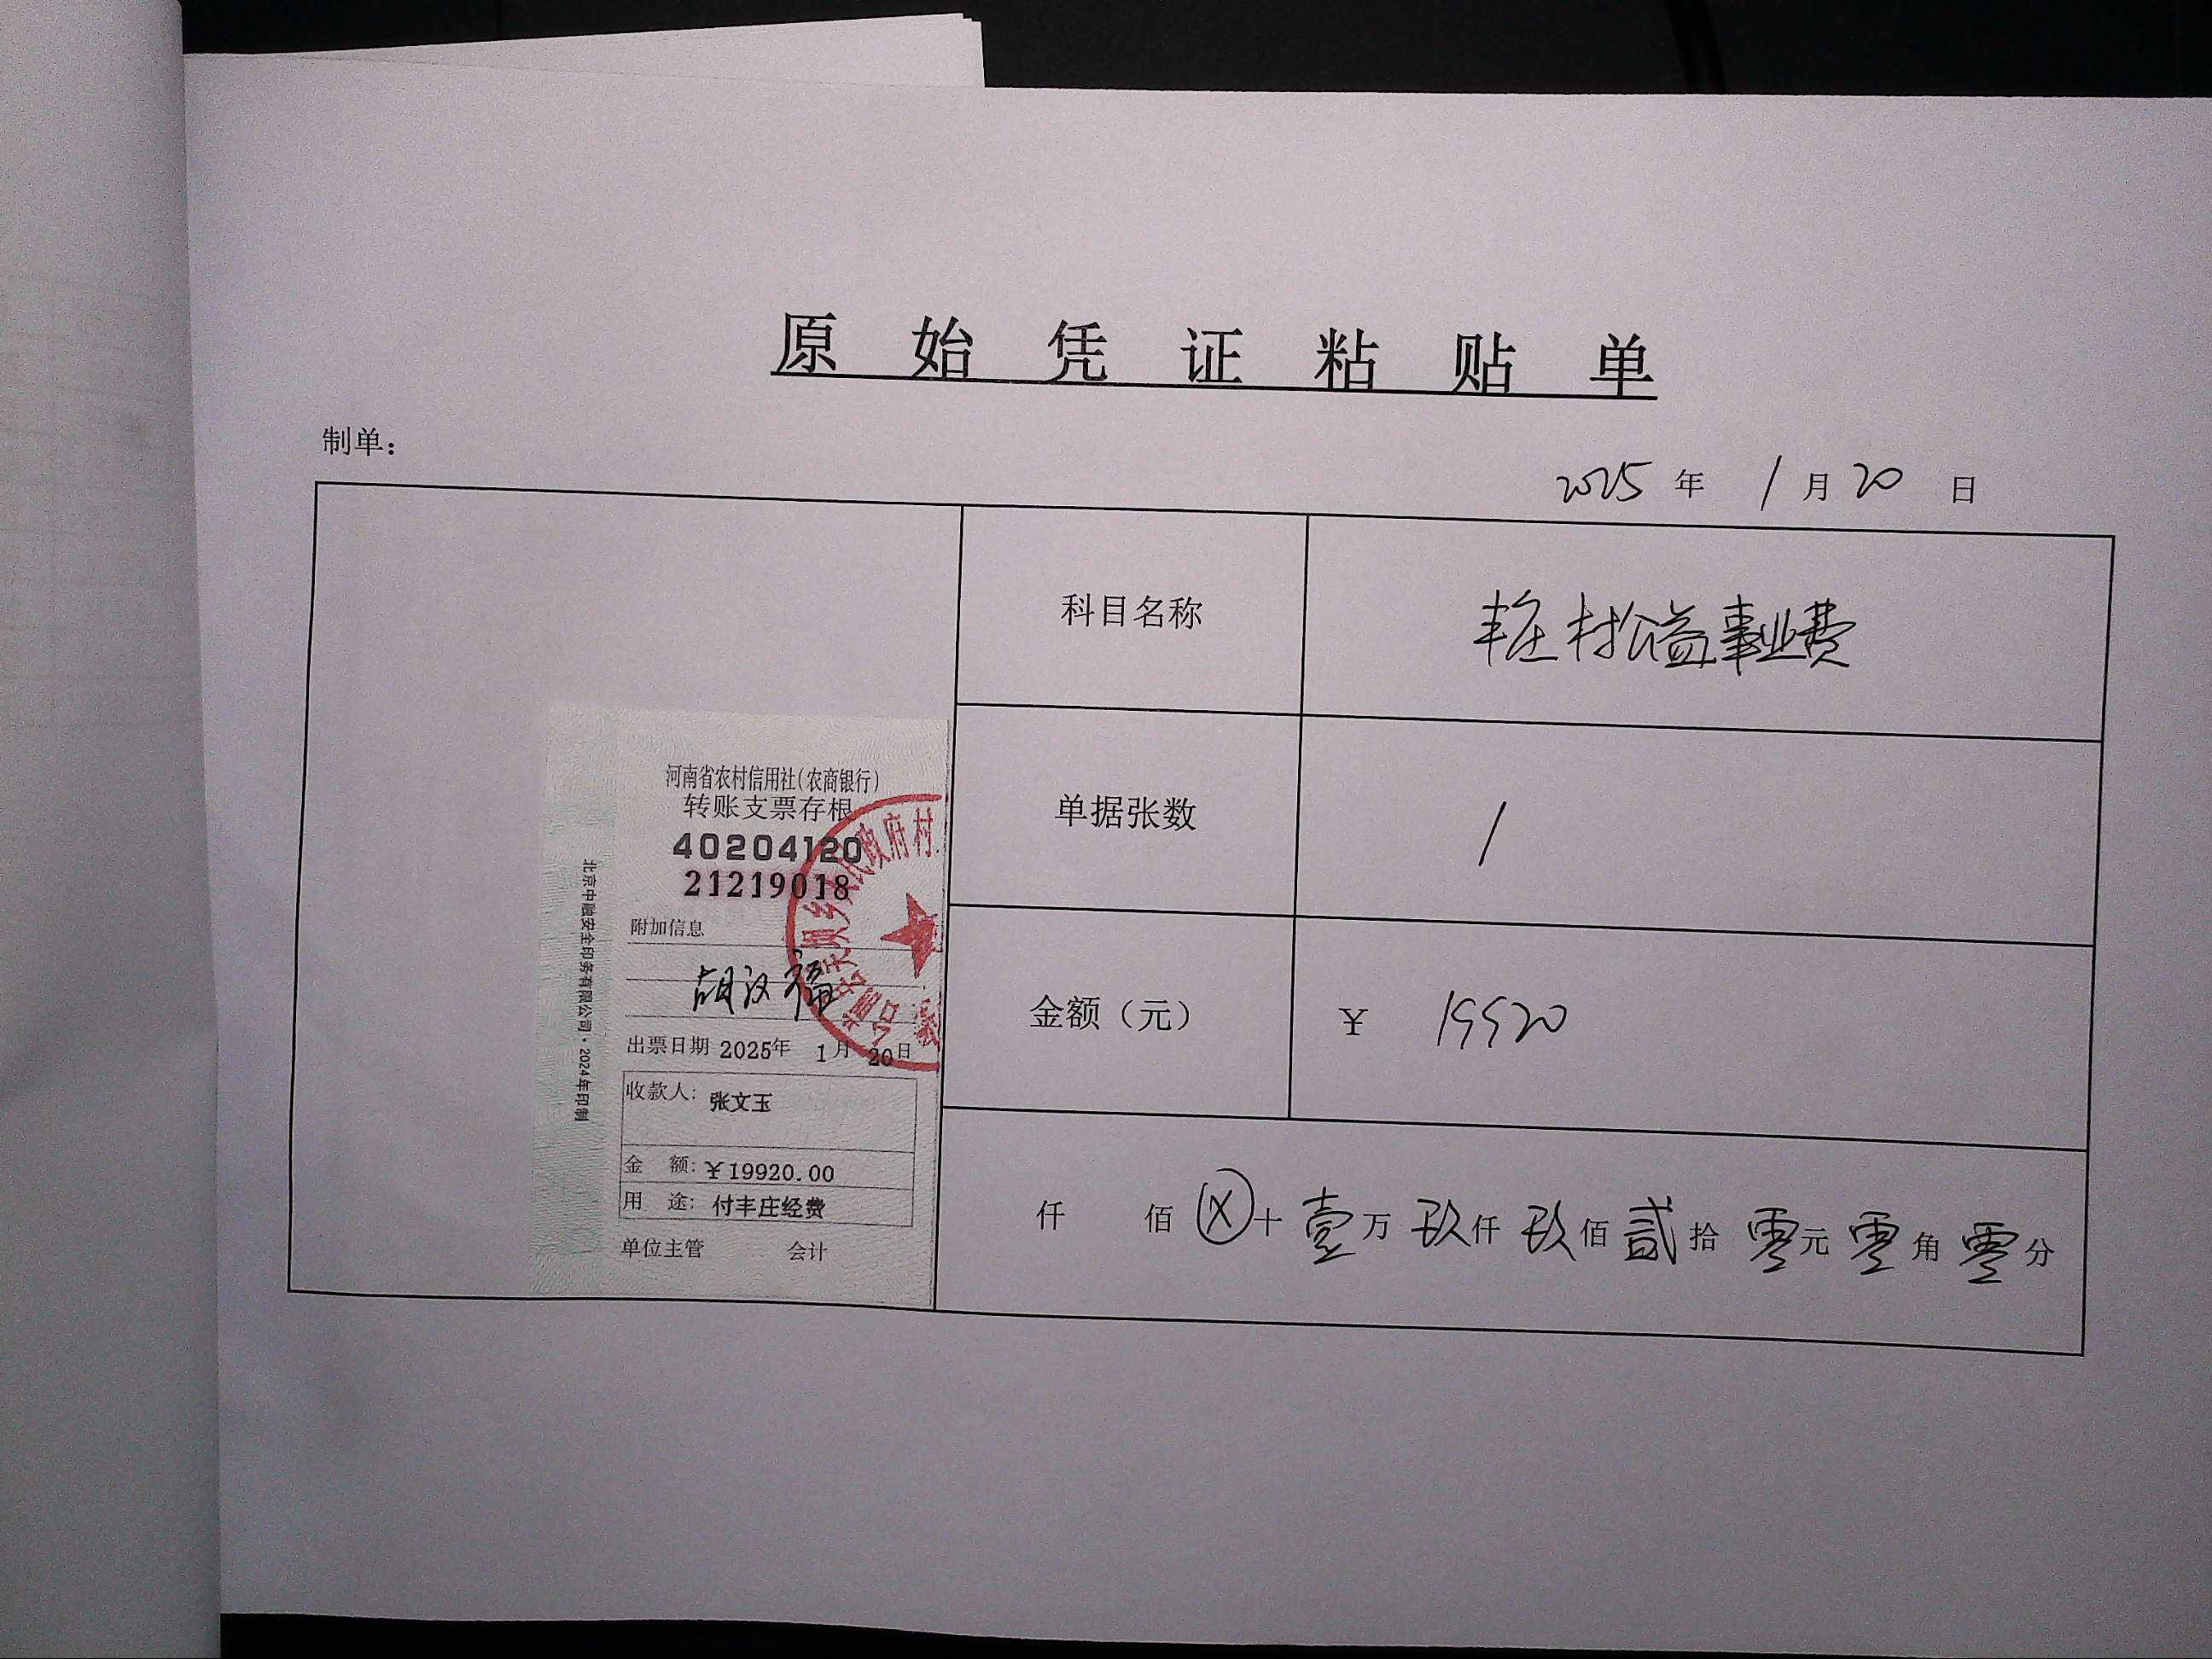 原始凭证粘贴单
制单：
2025年1月20日
科目名称 丰庄村公益事业费
单据张数 1
金额（元） ￥ 19920
仟 佰ⓧ十壹万玖仟玖佰贰拾零元零角零分
河南省农村信用社(农商银行)
转账支票存根
40204120
21219018
附加信息
胡汉福
出票日期 2025年 1月 20日
收款人: 张文玉
金 额: ￥19920.00
用 途: 付丰庄经费
单位主管 会计
北京中融安全印务有限公司·2024年印制
乡人民政府村